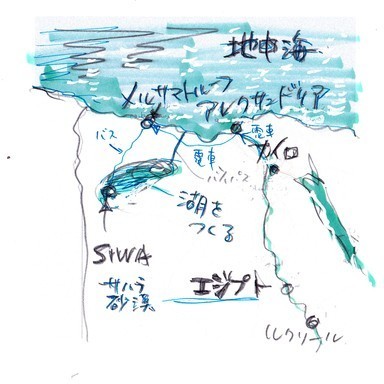 地中海
メルサマトルーフ
アレクサンドリア
バス
電車
電車
カイロ
バイパス
湖を
つくる
SIWA
サハラ
砂漠
エジプト
ルクソール